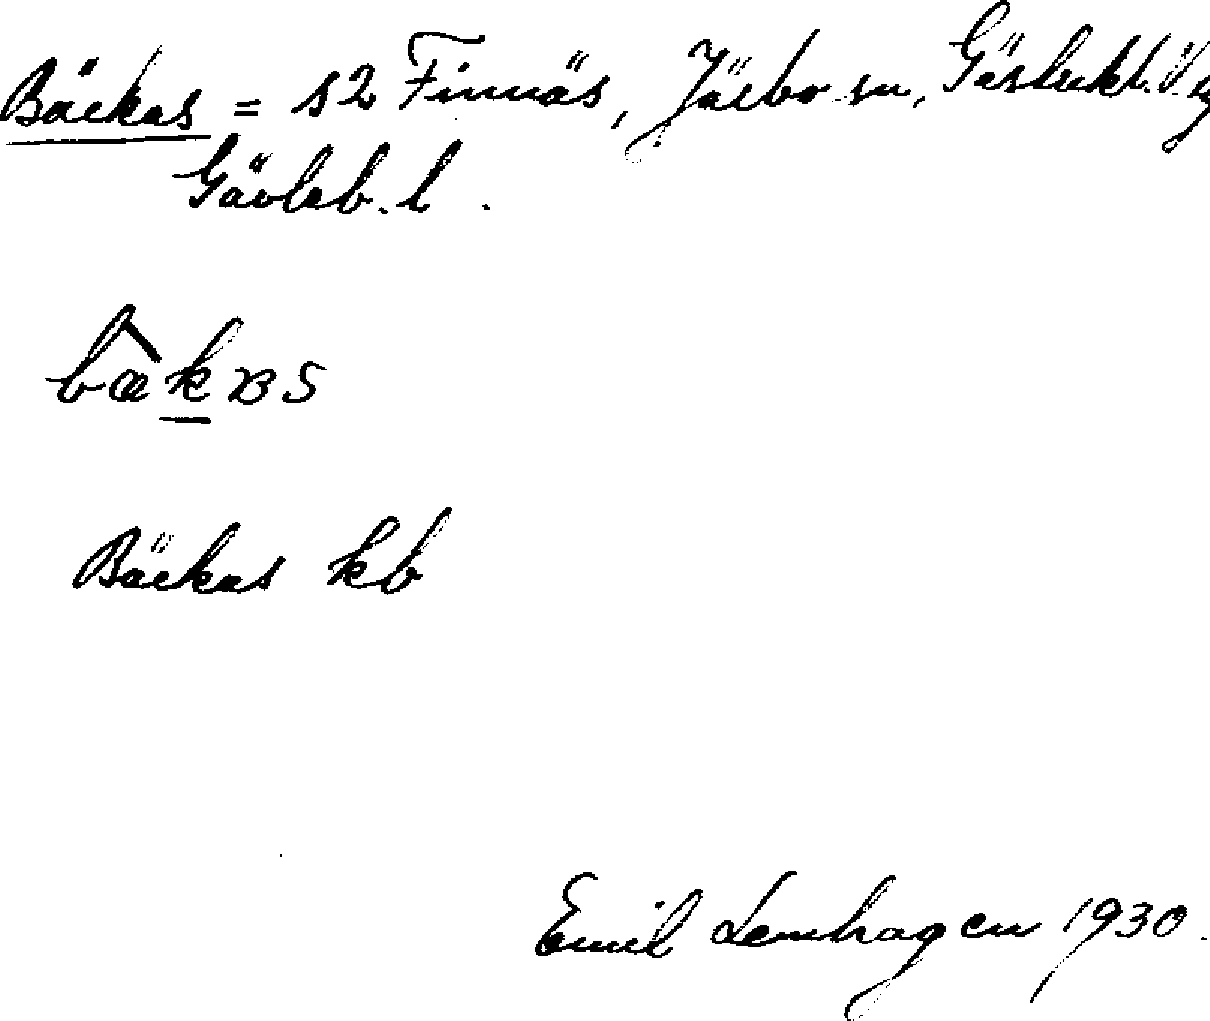 Bäckas = s2 Finnäs, Järbo sn, Gästrikl. V
Gävleb. l.
bækɐs
Bäckas kb
Emil Lemhagen 1930.